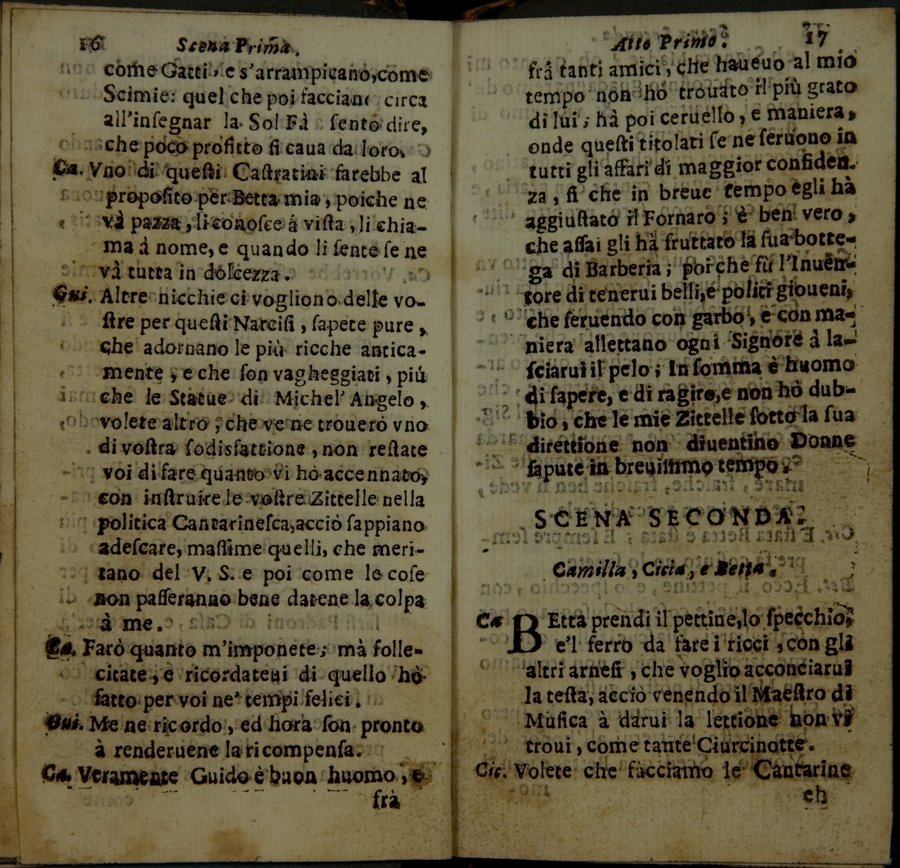 16 Scena Prima.
come Gatti, e s'arrampicano, come
Scimie: quel che poi facciano circa
all'insegnar la Sol Fà sento dire,
che poco profitto si caua da loro.
Ca. Vno di questi Castratini farebbe al
proposito per Betta mia, poiche ne
và pazza, li conosce á vista, li chia-
ma à nome, e quando li sente se ne
và tutta in dolcezza.
Gui. Altre nicchie ci vogliono delle vo-
stre per questi Narcisi, sapete pure,
che adornano le più ricche antica-
mente, e che son vagheggiati, più
che le Statue di Michel' Angelo,
volete altro, che ve ne trouerò vno
di vostra sodisfattione, non restate
voi di fare quanto vi hò accennato,
con instruire le vostre Zittelle nella
politica Cantarinesca, acciò sappiano
adescare, massime quelli, che meri-
tano del V. S. e poi come le cose
non passeranno bene datene la colpa
à me.
Ca. Farò quanto m'imponete; mà solle-
citate, e ricordateui di quello hò
fatto per voi ne' tempi felici.
Gui. Me ne ricordo, ed hora son pronto
à renderuene la ricompensa.
Ca. Veramente Guido è buon huomo, e
frà
Atto Primo. 17
frà tanti amici, che haueuo al mio
tempo non hò trouato il più grato
di lui; hà poi ceruello, e maniera,
onde questi titolati se ne seruono in
tutti gli affari di maggior confiden-
za, si che in breue tempo egli hà
aggiustato il Fornaro; è ben vero,
che assai gli hà fruttato la sua botte-
ga di Barberia; poiche fù l'Inuen-
tore di tenerui belli, e politi gioueni,
che seruendo con garbo, e con ma-
niera allettano ogni Signore à la-
sciarui il pelo; In somma è huomo
di sapere, e di ragiro, e non hò dub-
bio, che le mie Zittelle sotto la sua
direttione non diuentino Donne
sapute in breuissimo tempo.
SCENA SECONDA.
Camilla, Cicia, e Betta.
Ca BEtta prendi il pettine, lo specchio,
e'l ferro da fare i ricci, con gli
altri arnesi, che voglio acconciarui
la testa, acciò venendo il Maestro di
Musica à darui la lettione non vi
troui, come tante Ciurcinotte.
Cic. Volete che facciamo le Cantarine
ch